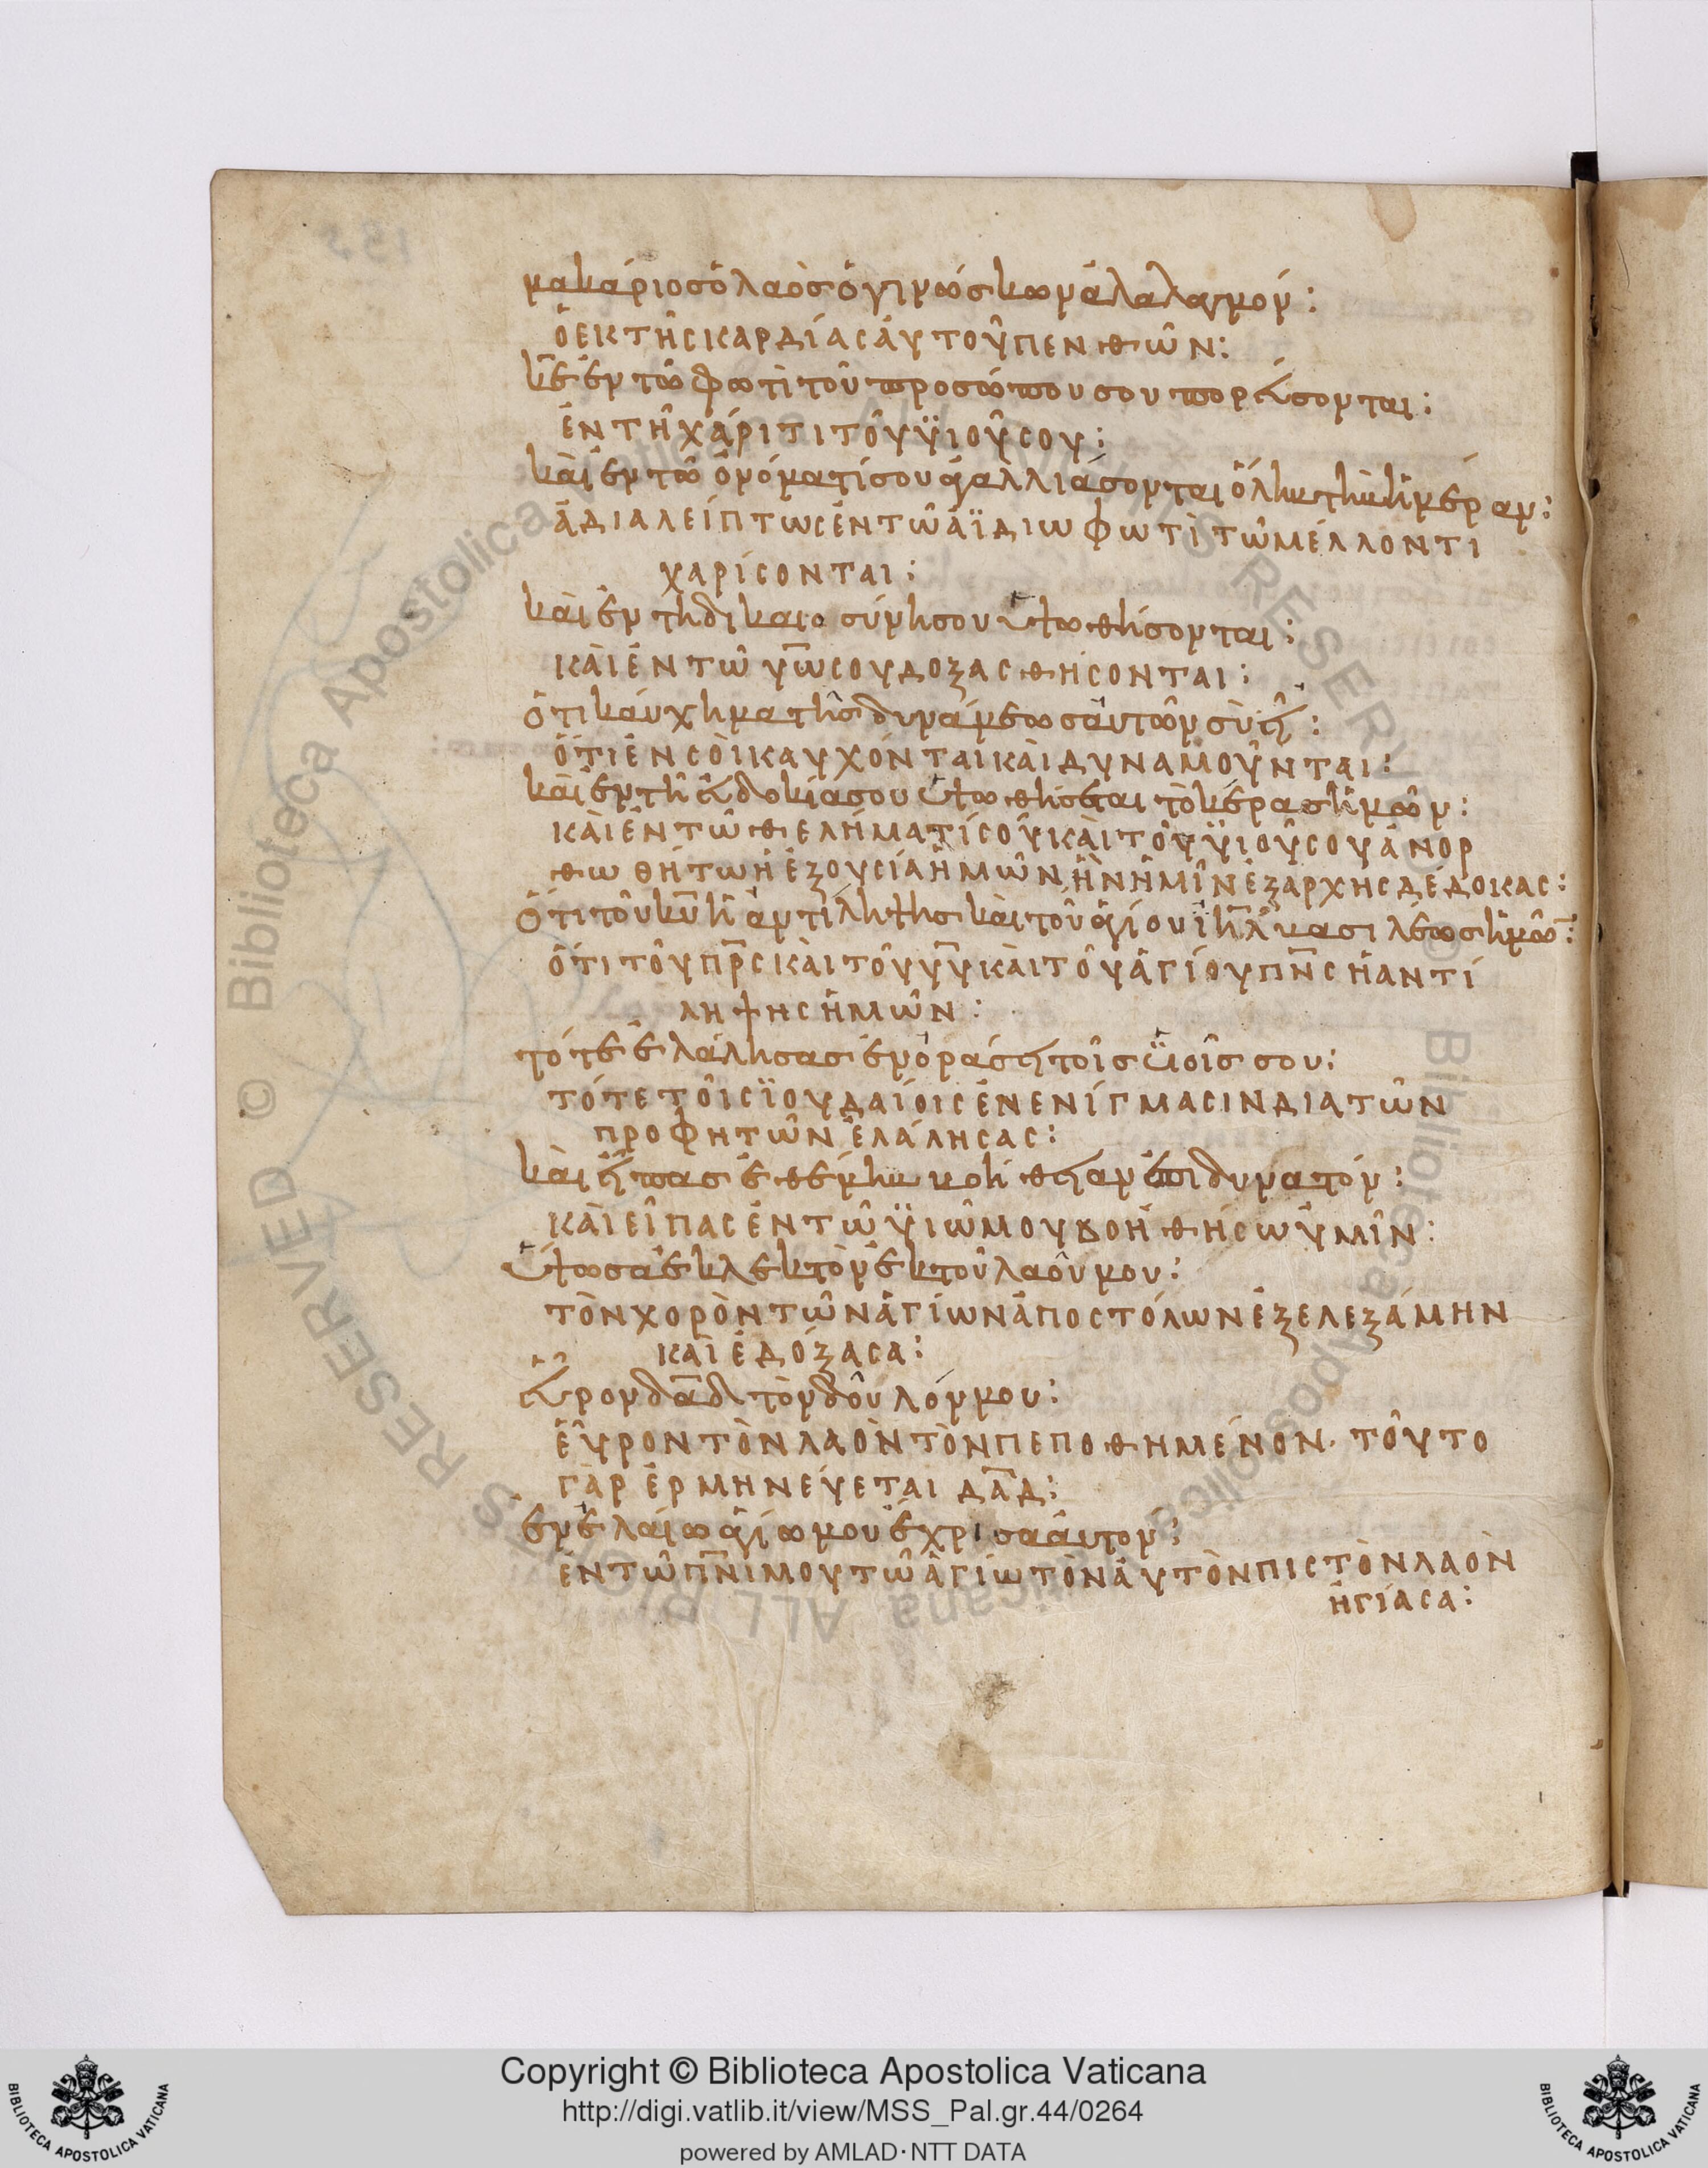 μακάριος ὁ λαὸς ὁ γινώσκων ἀλαλαγμόν:
ὁ ἐκ τῆς καρδίας ἀυτοῦ πενθῶν:
κ̅ε ἐν τῶ φωτὶ τοῦ προσώπου σου πορεύσονται:
ἐν τῆ χάριτι τοῦ ϋιοῦ σου:
κὰι ἐν τῶ ὀνόματί σου ἀγαλλιάσονται ὅλην τὴν ἡμέραν:
ἀδιαλείπτως ἐν τῶ ἀϊδιω φωτὶ τῶ μέλλοντι
χαρίσονται:
κὰι ἐν τῆ δικαιοσύνη σου ὑψωθήσονται:
κὰι ἐν τῶ υ̅ω σου δοξασθήσονται:
ὅτι κάυχημα τῆς δυνάμεως ἀυτῶν σὺ εἶ:
ὅτι ἐν σὸι καυχόνται κὰι δυναμοῦνται:
κὰι ἐν τῆ ἐυδοκία σου ὑψωθήσεται τὸ κέρας ἡμῶν:
κὰι ἐν τῶ θελήματί σου κὰι τοῦ ϋιοῦ σου ἀνορ
θωθήτω ἡ ἐξουσία ἡμῶν ἣν ἡμῖν ἐξαρχης δέδοκας:
ὅτι τοῦ κ̅υ ἡ ἀντίληψης κὰι τοῦ ἁγίου ι̅η̅λ βασιλέως ἡμῶ̅:
ὅτι τοῦ π̅ρ̅ς κὰι τοῦ υ̅υ κὰι τοῦ ἁγίου π̅ν̅ς ἡ αντί
ληψης ἡμῶν:
τότε ἐλάλησας ἐν ὁράσει τοῖς ϋιοῖς σου:
τότε τοῖς ϊουδαίοις ἐν ενίγμασιν δια τῶν
προφητῶν ἐλάλησας:
κὰι εἶπας ἐθέμην βοήθειαν ἐπι δυνατόν:
κὰι εἶπας ἐν τῶ ϋιῶ μου βοήθήσω ὑμῖν:
ὕψωσα ἐκλεκτὸν ἐκ τοῦ λαοῦ μου:
τὸν χορὸν τῶν ἁγίων ἀποστόλων ἐξελεξάμην
κὰι ἐδόξασα:
εὗρον δ̅α̅δ τὸν δοῦλόν μου:
εὗρον τὸν λαὸν τὸν πεποθημένον· τοῦτο
γὰρ ἑρμηνεύεται δ̅α̅δ:
ἐν ἐλαίω ἁγίω μου ἔχρισα ἀυτον:
ἐν τῶ π̅ν̅ι μου τῶ ἁγίω τὸν ἀυτὸν πιστὸν λαὸν
ἡγίασα:
Copyright © Biblioteca Apostolica Vaticana
http://digi.vatlib.it/view/MSS_Pal.gr.44/0264
powered by AMLAD·NTT DATA